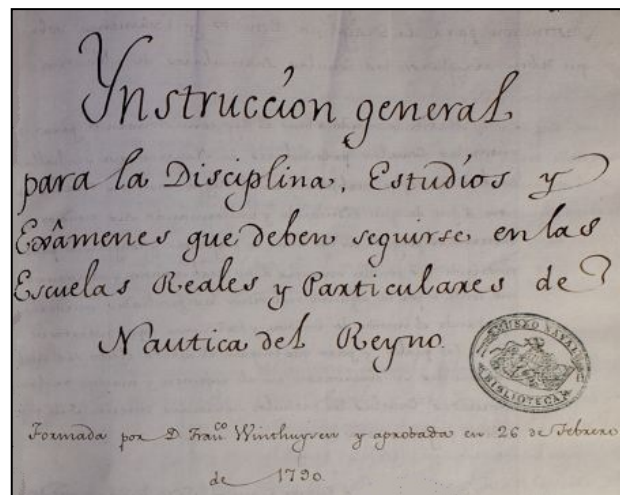 Ynstrucción general
para la Disciplina, Estudios y
Exâmenes que deben seguirse en las
Escuelas Reales y Particulares de
Nautica del Reyno.
MUSEO NAVAL
BIBLIOTECA
Formada por D. Fran.co Winthuysen y aprobada en 26 de Febrero
de 1790.